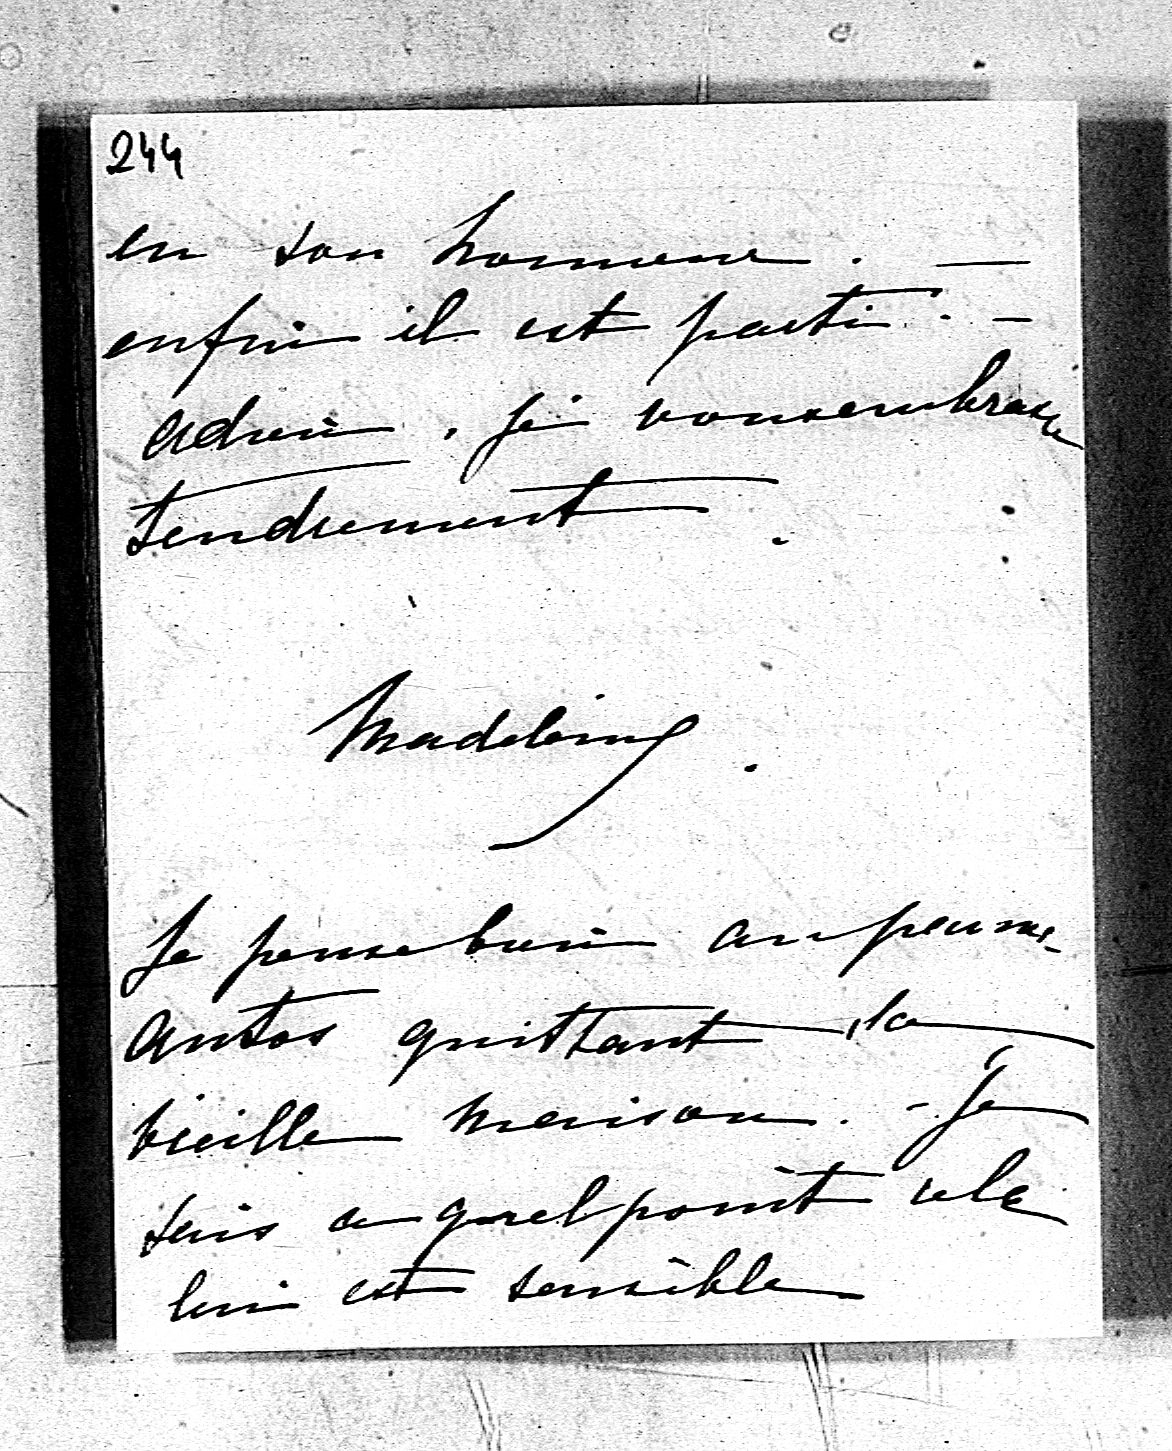 244
en son honneur. —
enfin il est parti. —
adieu, je vous embrasse
tendrement.
Madeleine.
Je pense bien au pauvre
Antos quittant la
vieille maison. - Je
sais a quel point cela
lui est sensible